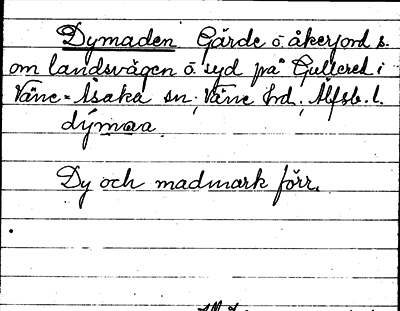 Dymaden Gärde ö. åkerjord s.
om landsvägen ö. syd på Gullered i
Väne-Åsaka sn, Väne hd, Älfsb. l.
dýmaa
Dy och madmark förr.